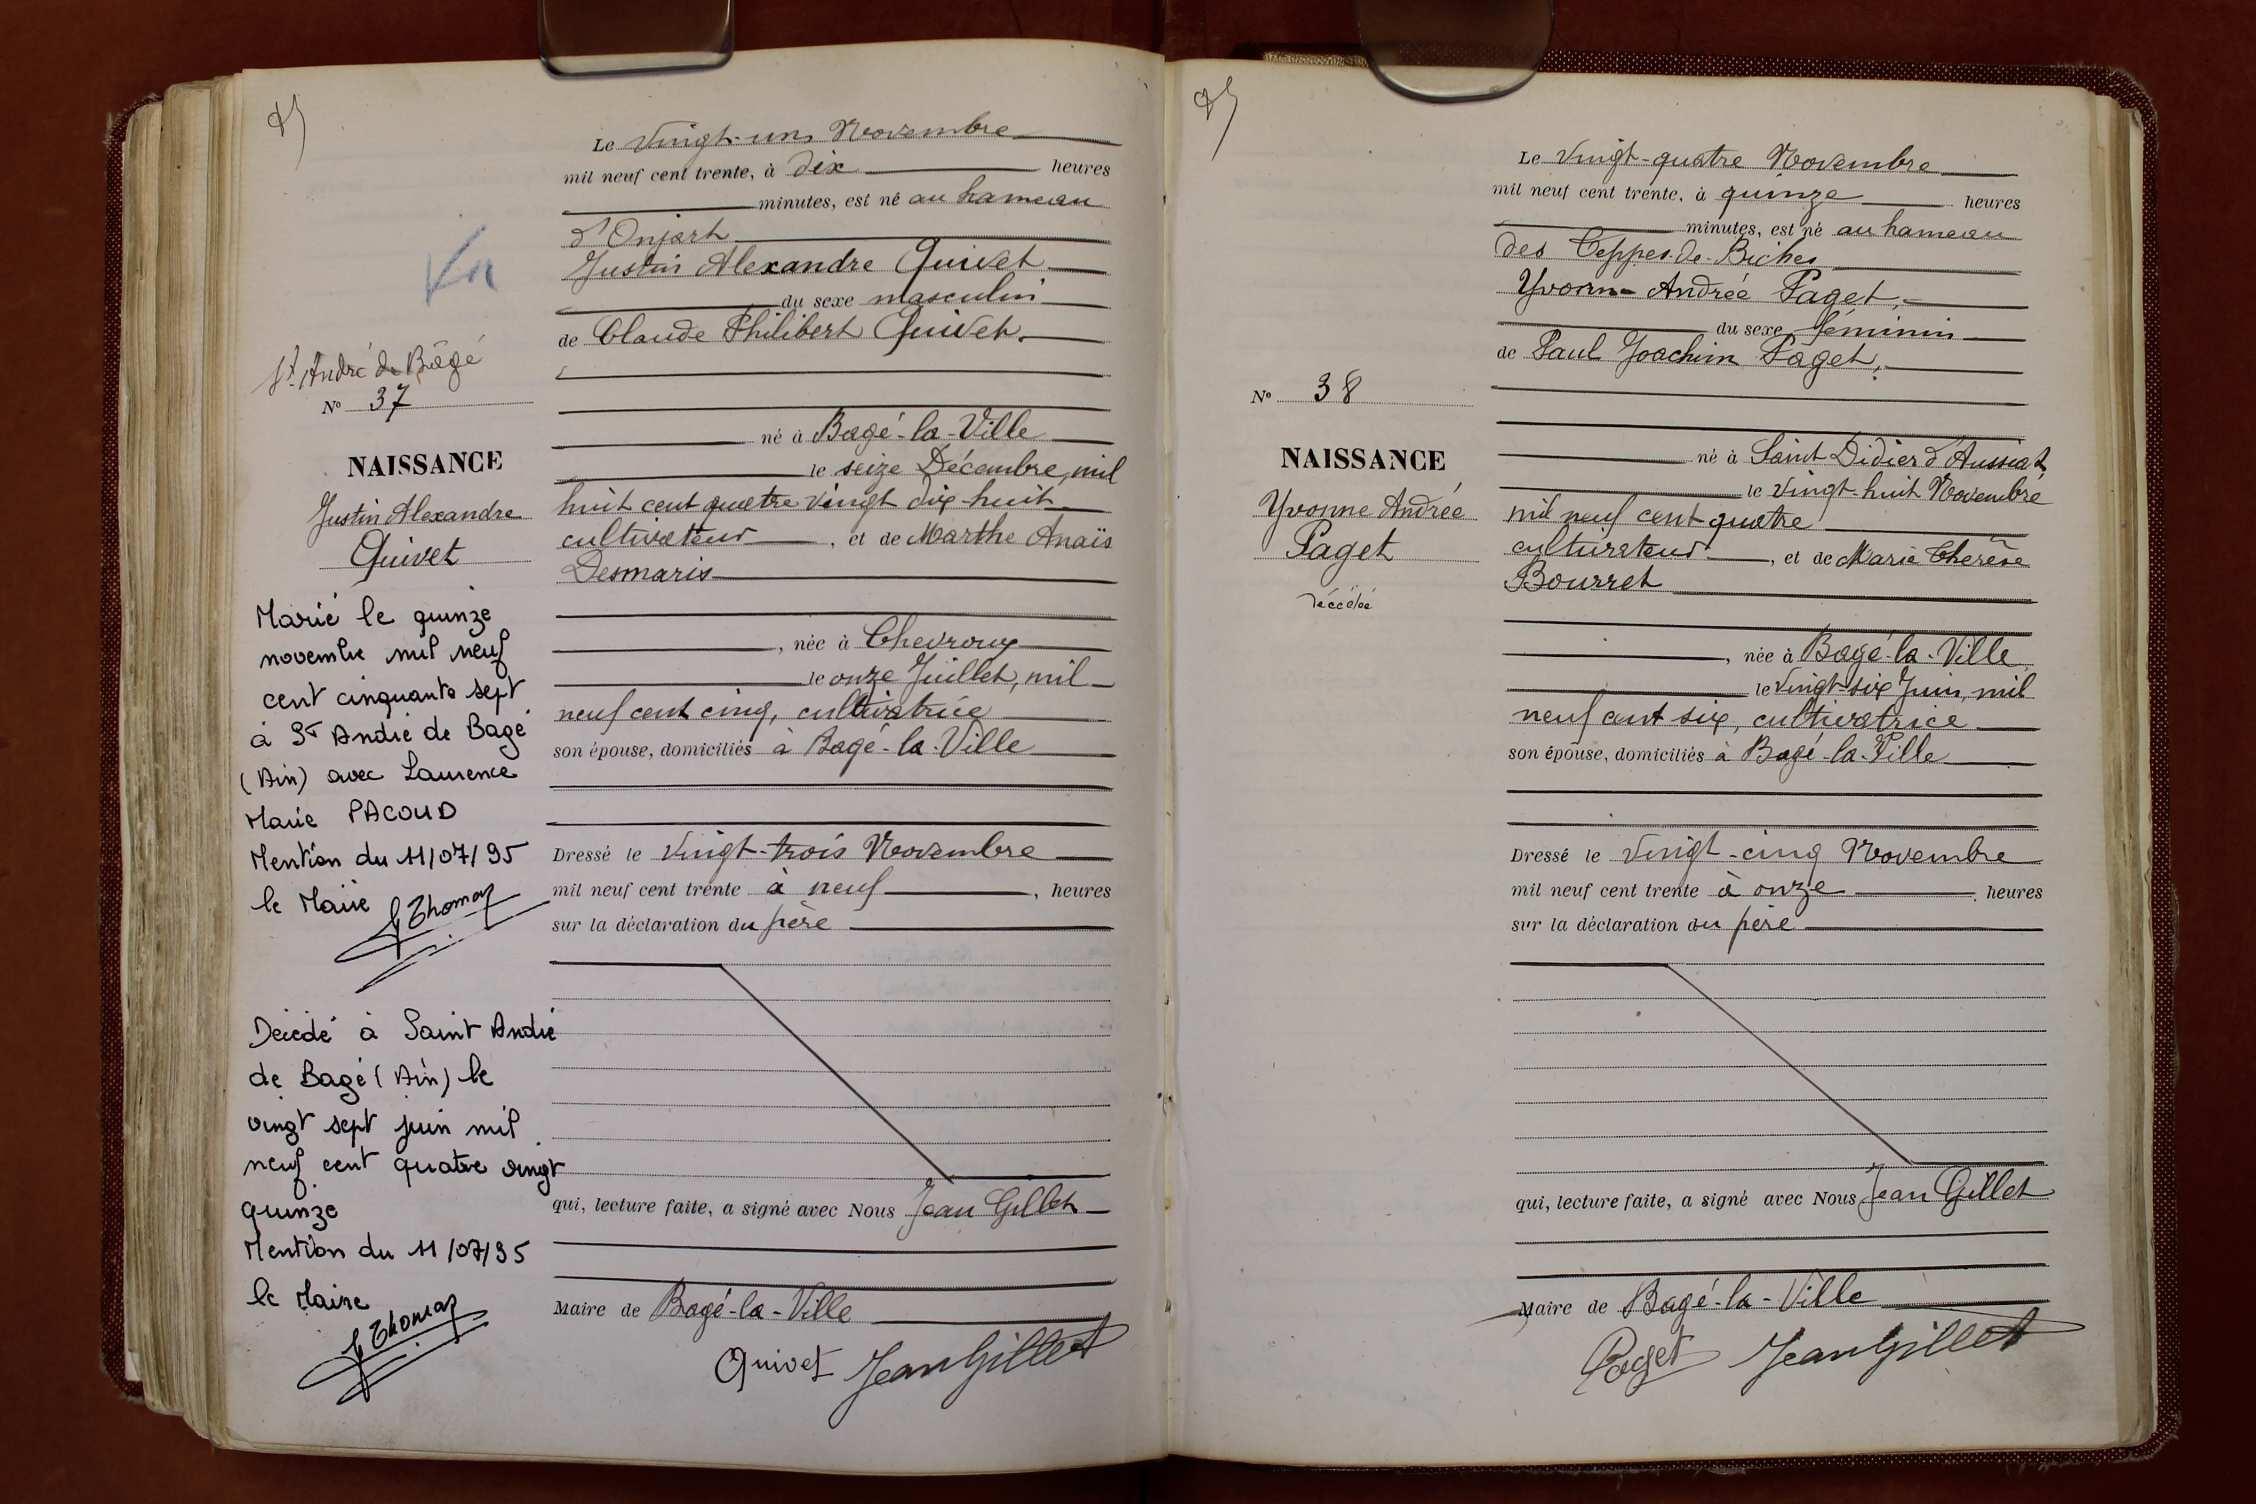 St André de Bâgé
No 37
NAISSANCE
Justin Alexandre
Quivet
Marié le quinze
novembre mil neuf
cent cinquante sept
à St André de Bagé
(Ain) avec Laurence
Marie PACOUD
Mention du 11/07/95
le Maire
Thomas
Décédé à Saint André
de Bagé (Ain) le
vingt sept juin mil
neuf cent quatre vingt
quinze
Mention du 11/07/95
le Maire
Thomas
Le Vingt-un Novembre
mil neuf cent trente, à dix heures
minutes, est né au hameau
d'Onjart
Justin Alexandre Quivet
du sexe masculin
de Claude Philibert Quivet.
né à Bagé-la-Ville
le seize Décembre, mil
huit cent quatre vingt dix huit
cultivateur, et de Marthe Anaïs
Desmaris
, née à Chevroux
le onze Juillet, mil
neuf cent cinq, cultivatrice
son épouse, domiciliés à Bagé-la-Ville
Dressé le Vingt-trois Novembre
mil neuf cent trente à neuf, heures
sur la déclaration du père
qui, lecture faite, a signé avec Nous Jean Gillet
Maire de Bagé-la-Ville
Quivet Jean Gillet
No 38
NAISSANCE
Yvonne Andrée
Paget
décédé
Le Vingt-quatre Novembre
mil neuf cent trente, à quinze heures
minutes, est né au hameau
des Teppes-de-Biches
Yvonne Andrée Paget,
du sexe féminin
de Paul Joachim Paget,
né à Saint Didier d'Aussiat
le vingt-huit Novembre
mil neuf cent quatre
cultivateur, et de Marie Therèse
Bourret
, née à Bagé-la-Ville,
le Vingt-six Juin, mil
neuf cent six, cultivatrice
son épouse, domiciliés à Bagé-la-Ville
Dressé le Vingt-cinq Novembre
mil neuf cent trente à onze, heures
sur la déclaration du père
qui, lecture faite, a signé avec Nous Jean Gillet
Maire de Bagé-la-Ville
Paget Jean Gillet